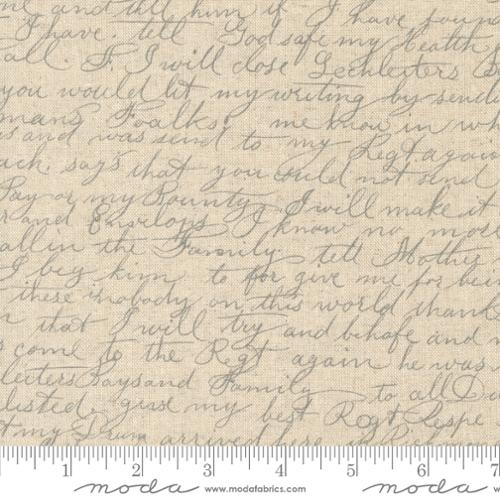 and tell him if I have found
I have. tell God safe my Health
all. F. I will close Lechleiters
you would let my writing by send
mans Foalks! me know in wh
is and was send to my Regt again
ack. say's that you could not send
Pay or my Bounty I will make it
r and Envelops I know no more
all in the Family. tell Mother
I beg him to for give me for bei
these is nobody on this world thank
n that I will try and behafe and
s come to the Regt again he was
leiters Says and Family to all D
listed. give my best Regt Respe
t my Drum arrived here in
1 2 3 4 5 6 7
moda www.modafabrics.com moda